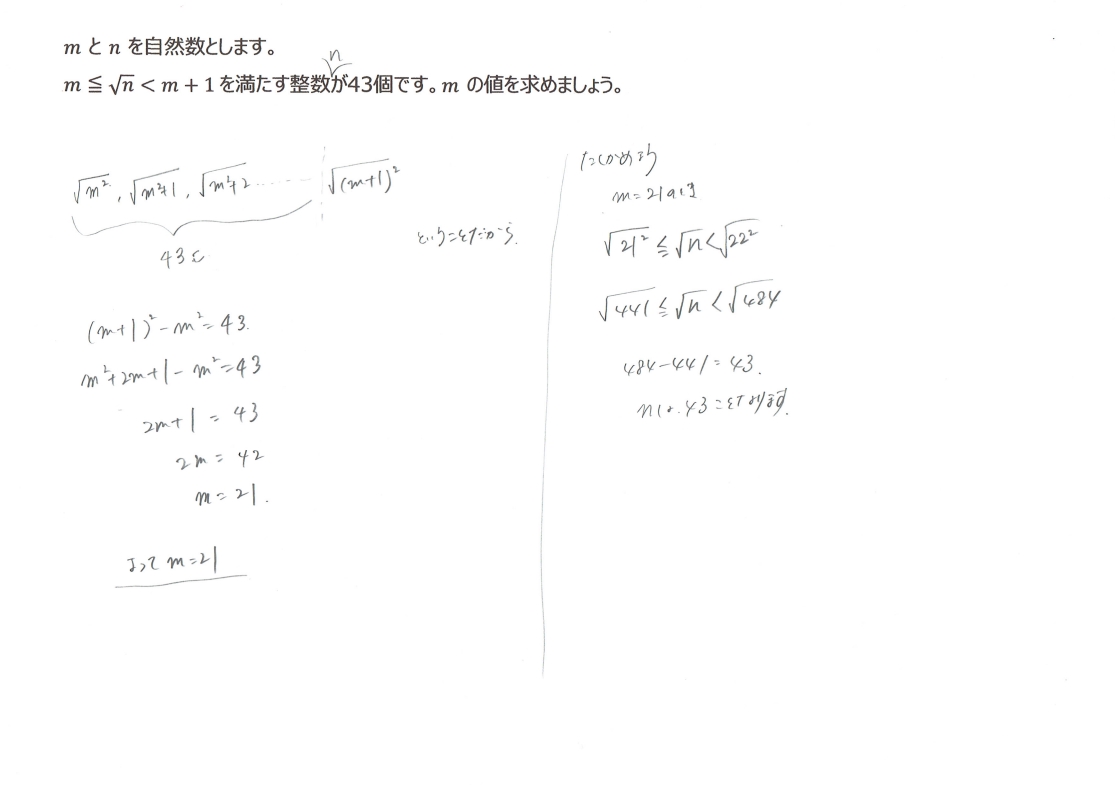 mとnを自然数とします。
m≦√n<m+1を満たす整数nが43個です。mの値を求めましょう。
√m², √m²+1, √m²+2 ······ √(m+1)²
43こ
ということだから.
(m+1)²-m²=43.
m²+2m+1-m²=43
2m+1=43
2m=42
m=21.
よって m=21
たしかめよう
m=21のとき
√21²≦√n<√22²
√441≦√n<√484
484-441=43.
nは、43こ